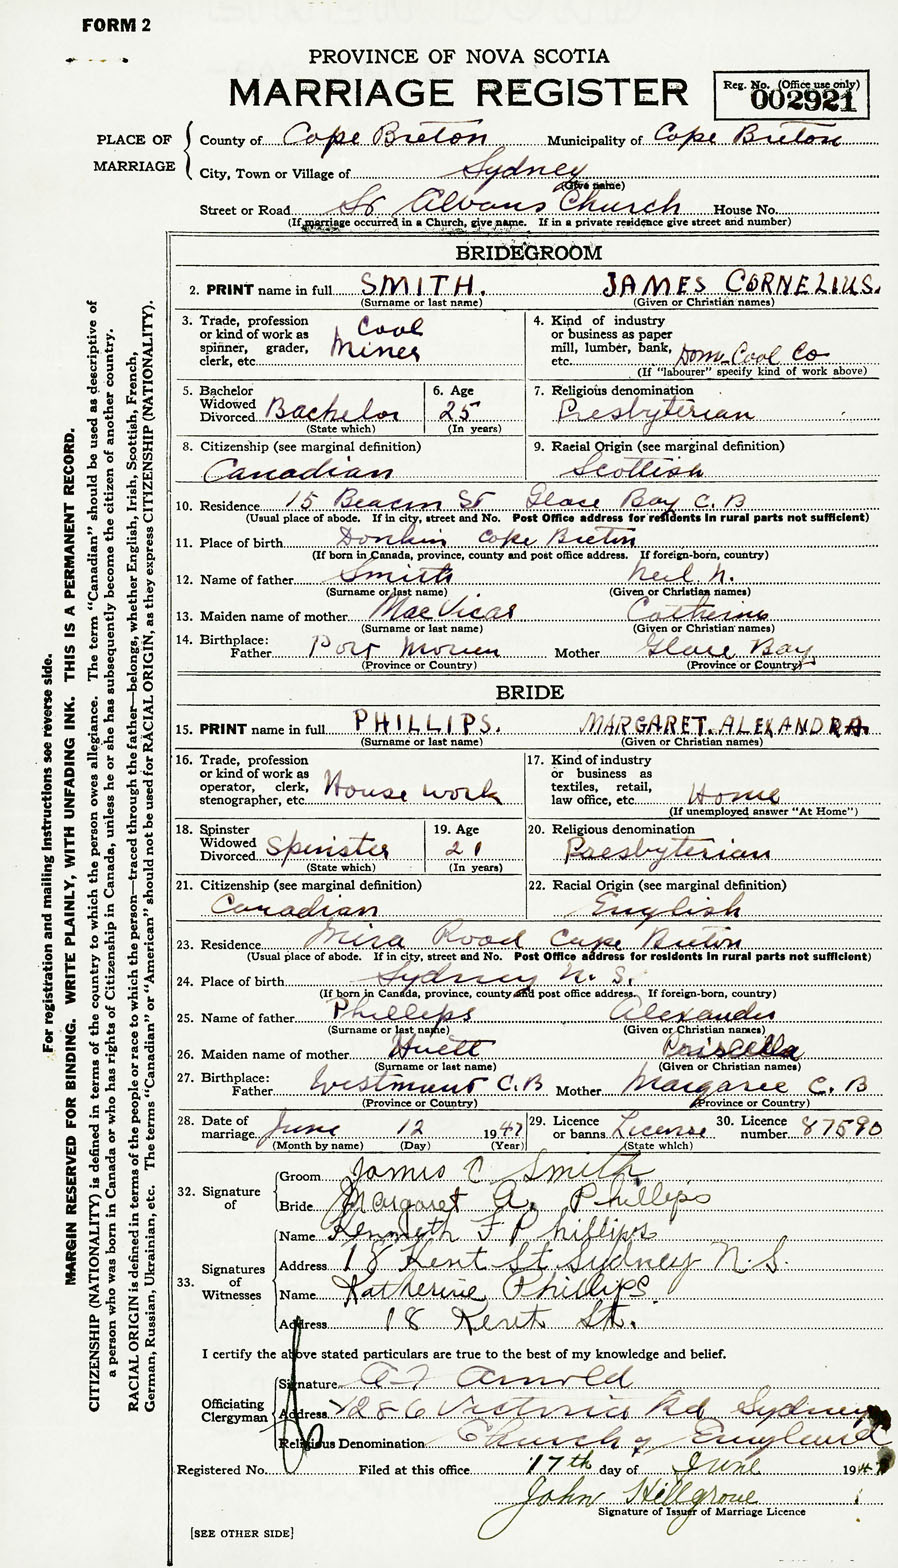 FORM 2
PROVINCE OF NOVA SCOTIA
MARRIAGE REGISTER
Reg. No. (Office use only)
002921
PLACE OF MARRIAGE
County of Cape Breton Municipality of Cape Breton
City, Town or Village of Sydney
(Give name)
Street or Road St Albans Church House No.
(If marriage occurred in a Church, give name. If in a private residence give street and number)
BRIDEGROOM
2. PRINT name in full SMITH. JAMES CORNELIUS.
(Surname or last name) (Given or Christian names)
3. Trade, profession or kind of work as spinner, grader, clerk, etc. Coal Miner
4. Kind of industry or business as paper mill, lumber, bank, etc. Dom. Coal Co
(If "labourer" specify kind of work above)
5. Bachelor Widowed Divorced Bachelor
(State which)
6. Age 25
(In years)
7. Religious denomination
Presbyterian
8. Citizenship (see marginal definition)
Canadian
9. Racial Origin (see marginal definition)
Scottish
10. Residence 15 Beacon St Glace Bay C. B
(Usual place of abode. If in city, street and No. Post Office address for residents in rural parts not sufficient)
11. Place of birth Donkin Cape Breton
(If born in Canada, province, county and post office address. If foreign-born, country)
12. Name of father Smith Neil N.
(Surname or last name) (Given or Christian names)
13. Maiden name of mother MacVicar Catherine
(Surname or last name) (Given or Christian names)
14. Birthplace:
Father Port Morien Mother Glace Bay
(Province or Country) (Province or Country)
BRIDE
15. PRINT name in full PHILLIPS. MARGARET. ALEXANDRA.
(Surname or last name) (Given or Christian names)
16. Trade, profession or kind of work as operator, clerk, stenographer, etc. House work
17. Kind of industry or business as textiles, retail, law office, etc. Home
(If unemployed answer "At Home")
18. Spinster Widowed Divorced Spinster
(State which)
19. Age 21
(In years)
20. Religious denomination
Presbyterian
21. Citizenship (see marginal definition)
Canadian
22. Racial Origin (see marginal definition)
English
23. Residence Mira Road Cape Breton
(Usual place of abode. If in city, street and No. Post Office address for residents in rural parts not sufficient)
24. Place of birth Sydney N. S.
(If born in Canada, province, county and post office address. If foreign-born, country)
25. Name of father Phillips Alexander
(Surname or last name) (Given or Christian names)
26. Maiden name of mother Huett Priscilla
(Surname or last name) (Given or Christian names)
27. Birthplace:
Father Westmount C.B Mother Margaree C. B
(Province or Country) (Province or Country)
28. Date of marriage June 12 1947
(Month by name) (Day) (Year)
29. Licence or banns License
(State which)
30. Licence number 87590
32. Signature of
Groom James C Smith
Bride Margaret A. Phillips
33. Signatures of Witnesses
Name Kenneth F Phillips
Address 18 Kent St Sydney N.S.
Name Katherine Phillips
Address 18 Kent St.
I certify the above stated particulars are true to the best of my knowledge and belief.
Officiating Clergyman
Signature Arnold
Address Victoria Rd Sydney
Religious Denomination Church of England
Registered No. Filed at this office 17th day of June 1947
John Hillgrove
Signature of Issuer of Marriage Licence
[SEE OTHER SIDE]
For registration and mailing instructions see reverse side.
MARGIN RESERVED FOR BINDING. WRITE PLAINLY, WITH UNFADING INK. THIS IS A PERMANENT RECORD.
CITIZENSHIP (NATIONALITY) is defined in terms of the country to which the person owes allegiance. The term "Canadian" should be used as descriptive of
a person who was born in Canada or who has rights of Citizenship in Canada, unless he or she has subsequently become the citizen of another country.
RACIAL ORIGIN is defined in terms of the people or race to which the person—traced through the father—belongs, whether English, Irish, Scottish, French,
German, Russian, Ukrainian, etc. The terms "Canadian" or "American" should not be used for RACIAL ORIGIN, as they express CITIZENSHIP (NATIONALITY).